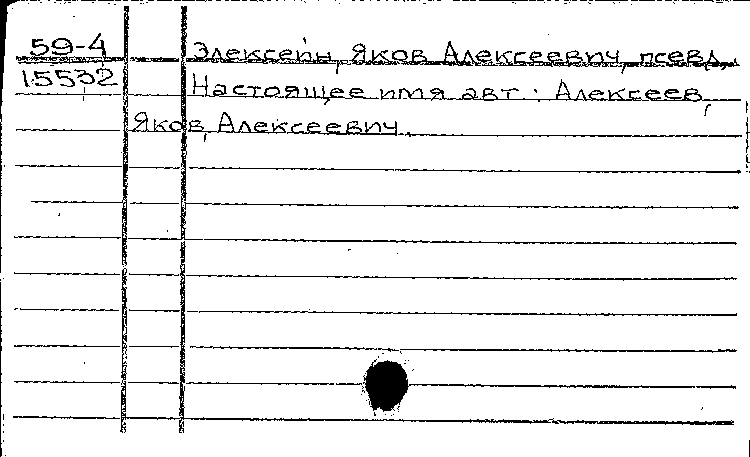 59-4 Элексейн, Яков Алексеевич, псевд.
15532 Настоящее имя авт.: Алексеев,
Яков Алексеевич.